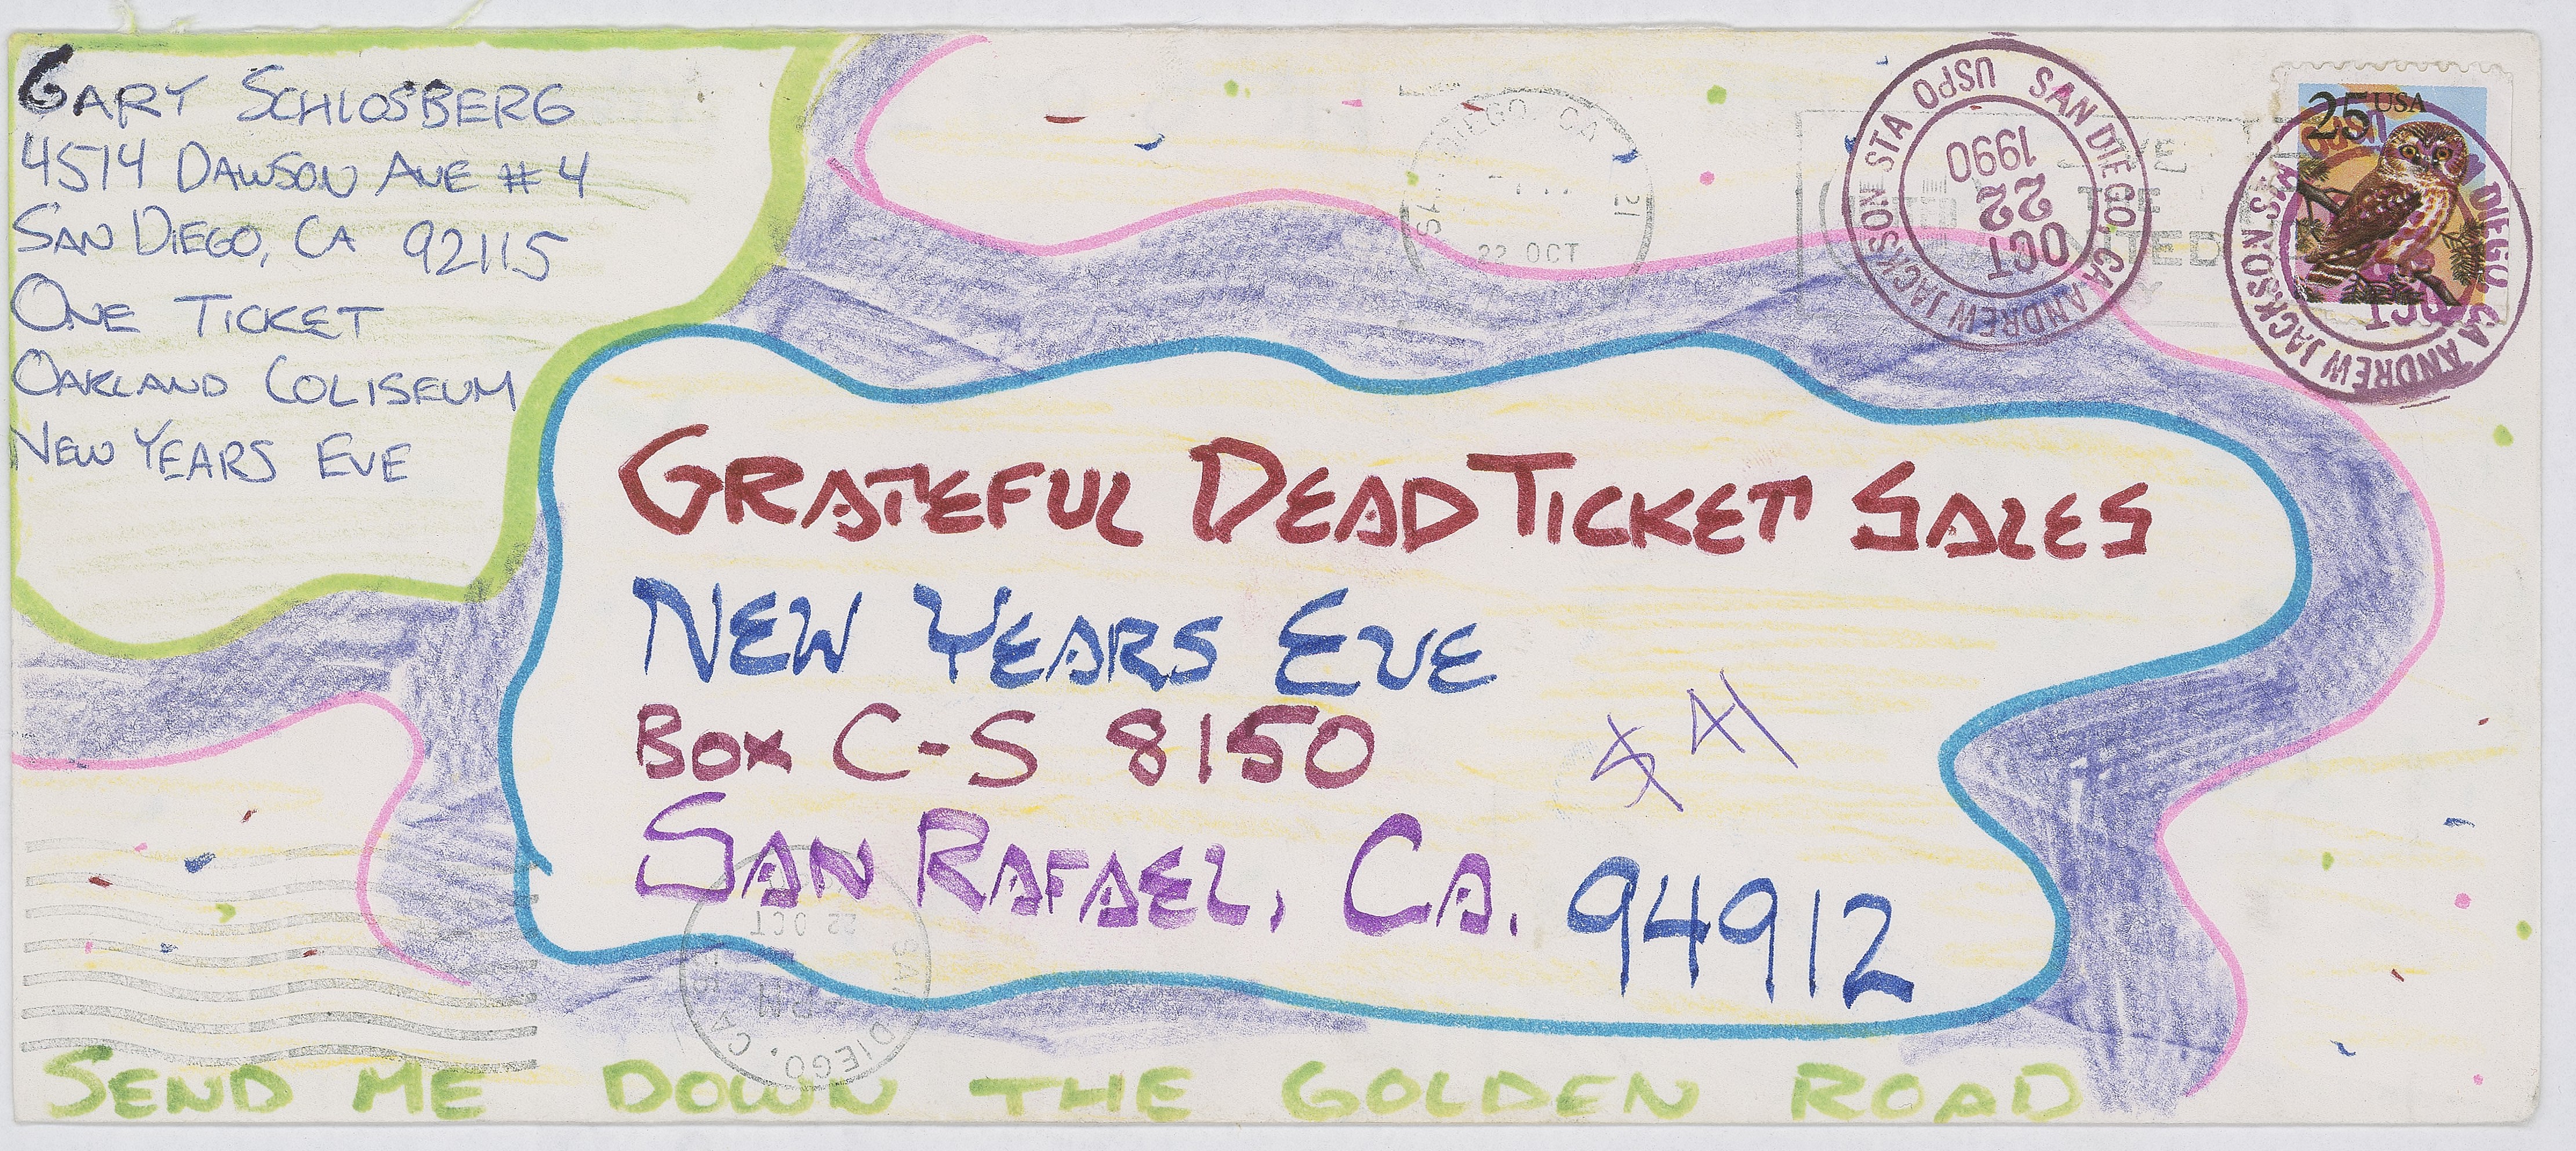 GARY SCHLOSBERG
4514 DAWSON AVE #4
SAN DIEGO, CA 92115
ONE TICKET
OAKLAND COLISEUM
NEW YEARS EVE
SAN DIEGO, CA
21
22 OCT
SAN DIEGO, CA ANDREW JACKSON STA USPO
OCT
22
1990
25 USA
DIEGO, CA ANDREW JACKSON STA USPO
OCT
GRATEFUL DEAD TICKET SALES
NEW YEARS EVE
BOX C-S 8150
SAN RAFAEL, CA. 94912
SAN DIEGO, CA
PM
22 OCT
SEND ME DOWN THE GOLDEN ROAD